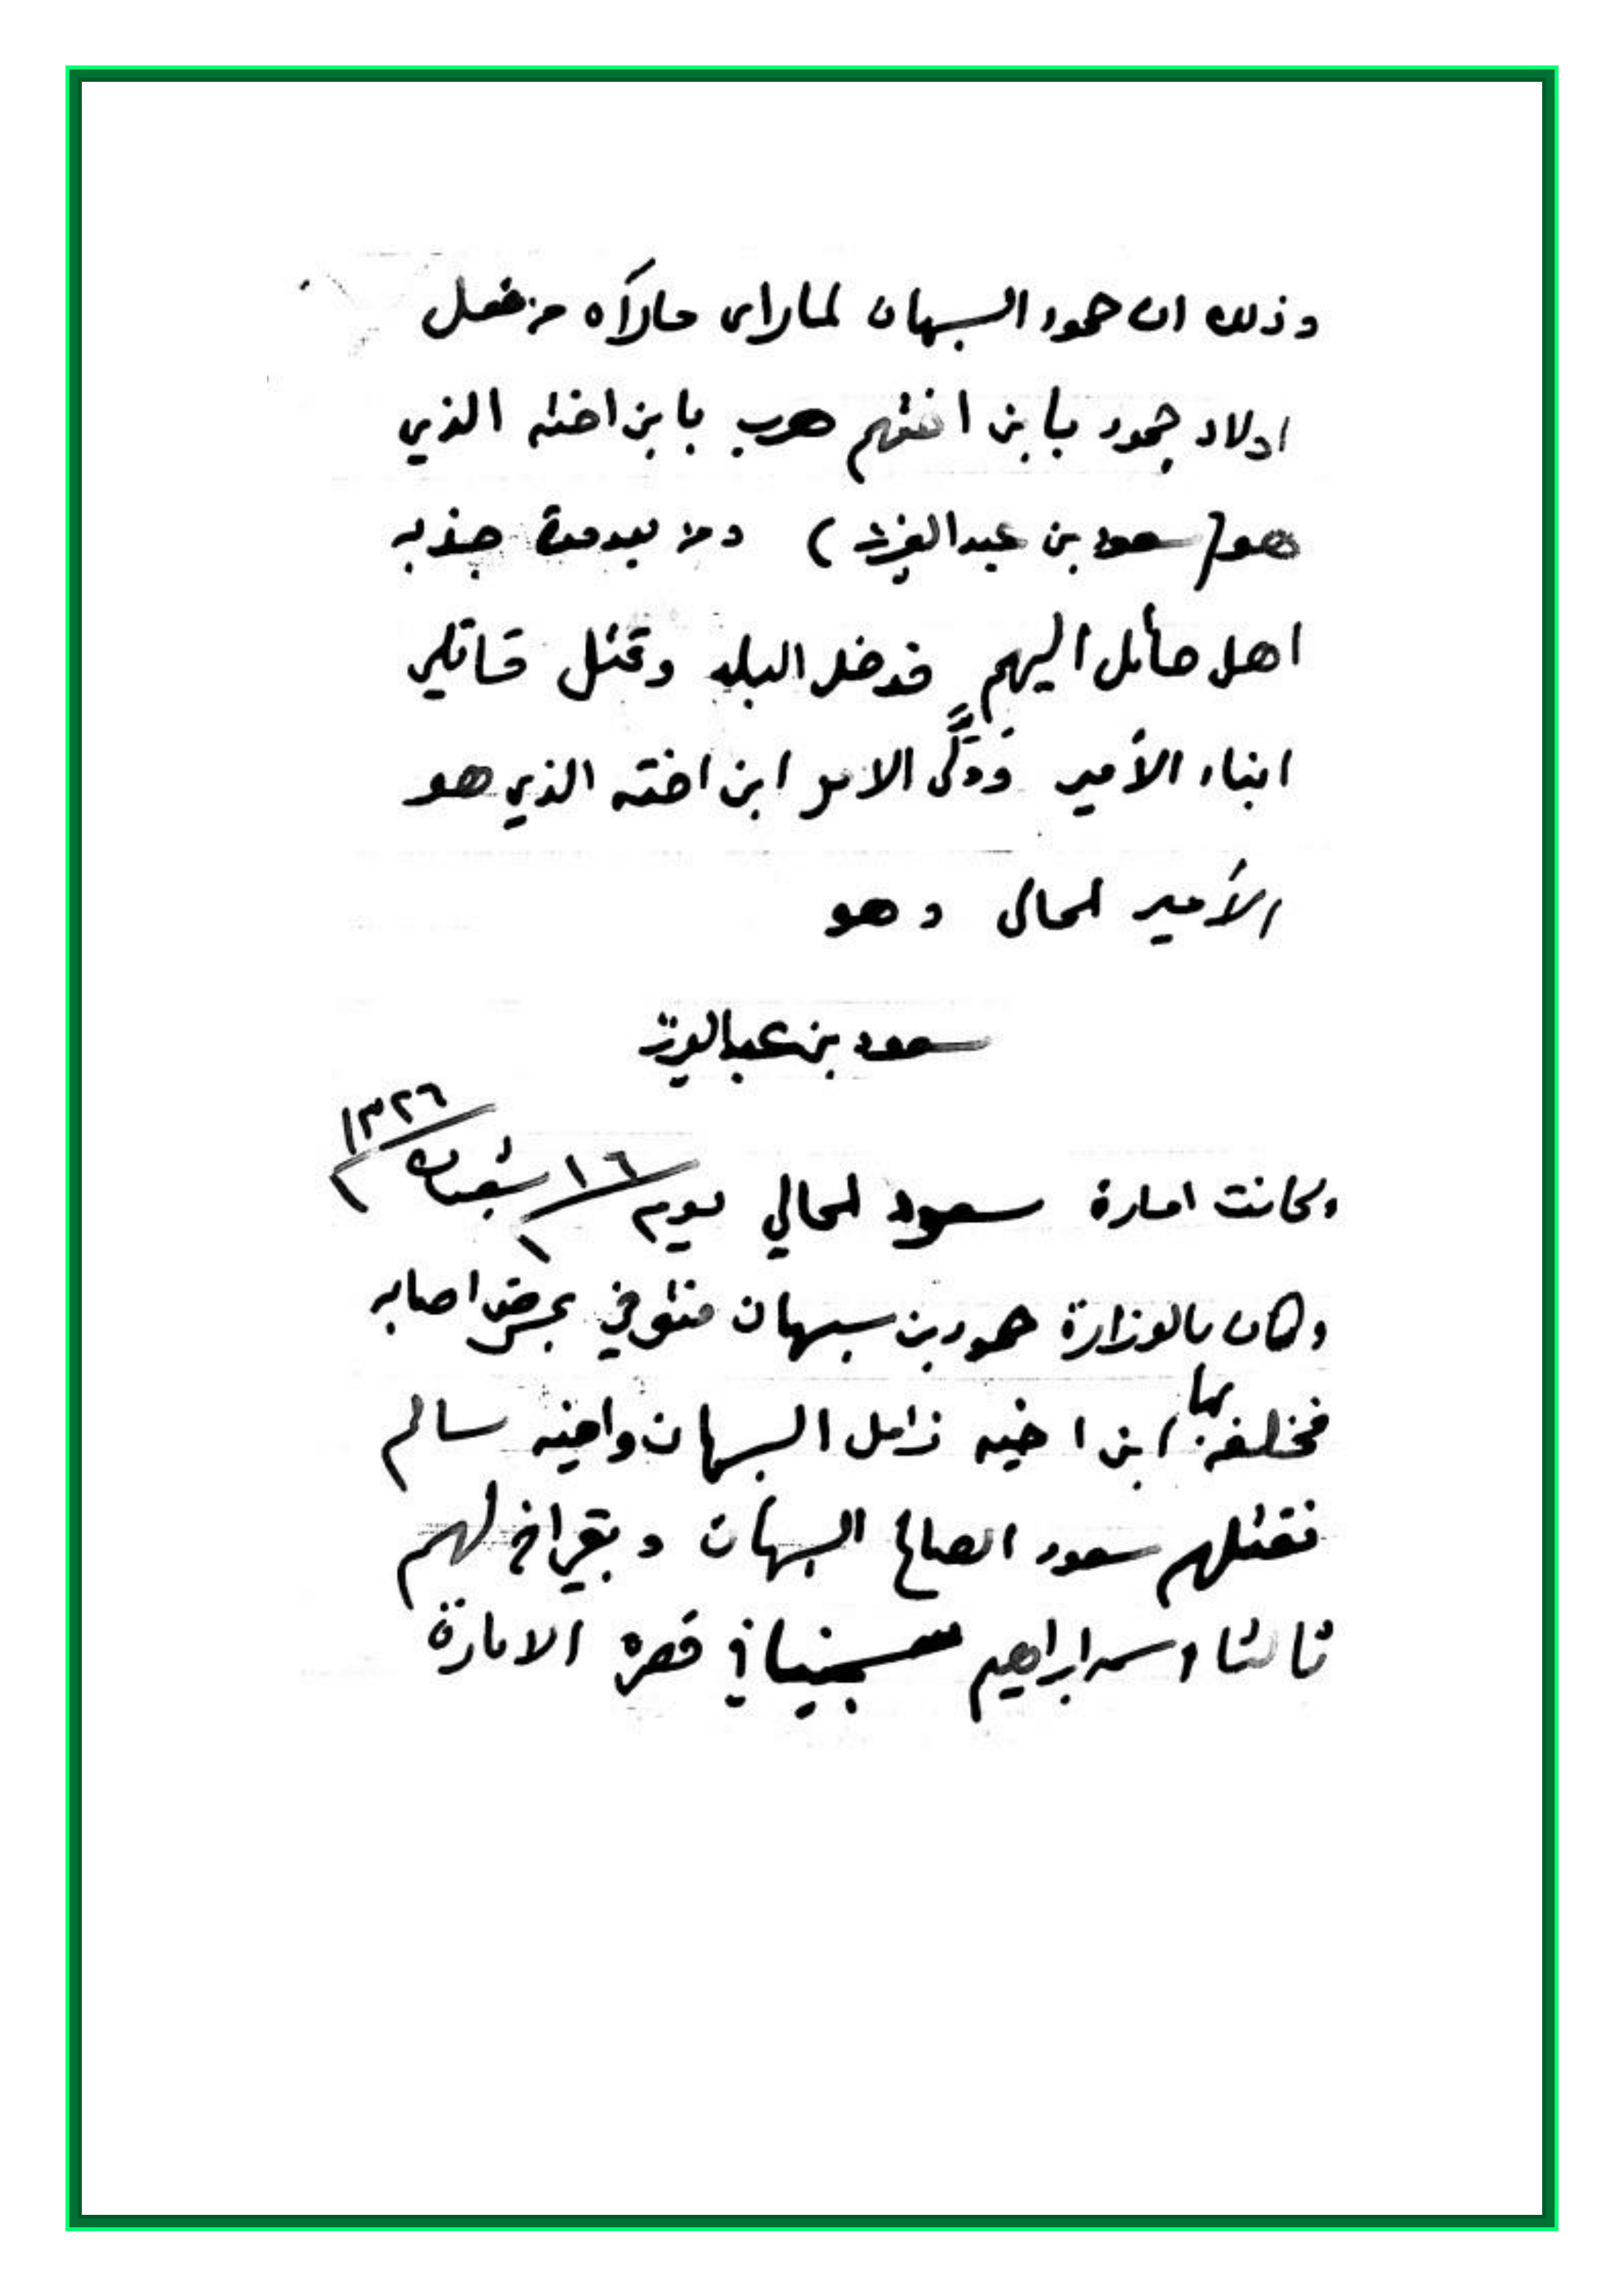 وذلك ان حمود السبهان لما رأى ما رآه من فعل
اولاد حمود بابن اختهم هرب بابن اخته الذي
هو (سعود بن عبدالعزيز) ومن بعد مدة جذبه
اهل حائل اليهم فدخل البلد وقتل قاتلي
ابناء الأمير وولَّى الامر ابن اخته الذي هو
الأمير الحالي وهو
سعود بن عبدالعزيز
وكانت امارة سعود الحالي يوم ١٦ شعبان ١٣٢٦
وكان بالوزارة حمود بن سبهان فتوفي بمرض اصابه
فخلفه بها ابن اخيه زامل السبهان واخيه سالم
فقتلهم سعود الصالح السبهان وبقي اخ لهم
ثالثا اسمه ابراهيم سجينا في قصر الامارة